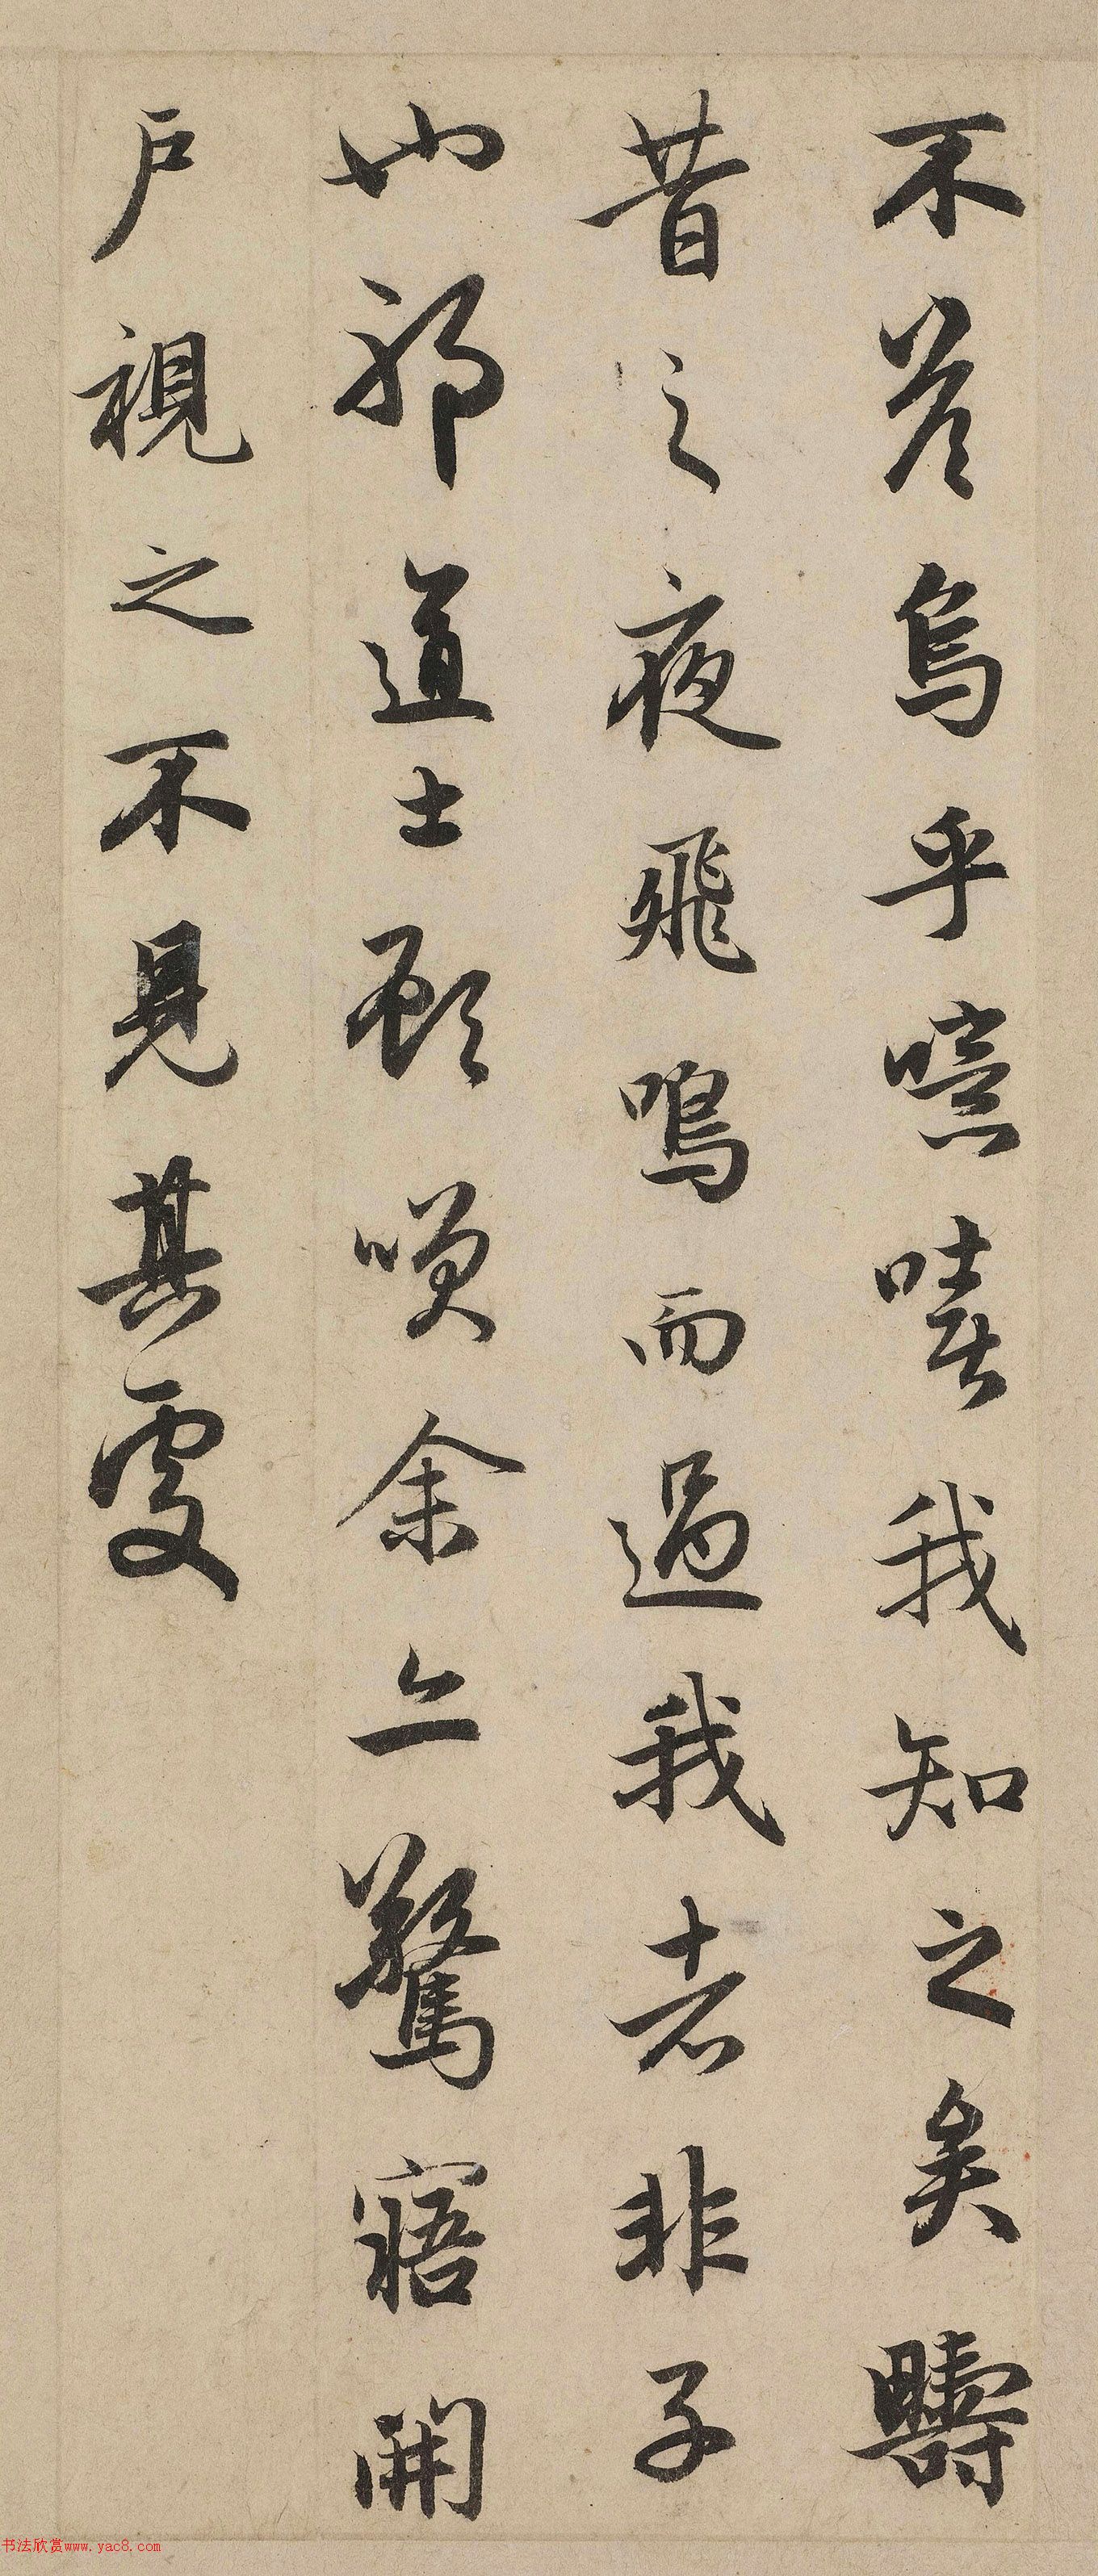 不答烏乎噫嘻我知之矣疇
昔之夜飛鳴而過我者非子
也邪道士顧嘆余亦驚寤開
户視之不見其處
书法欣赏www.yac8.com